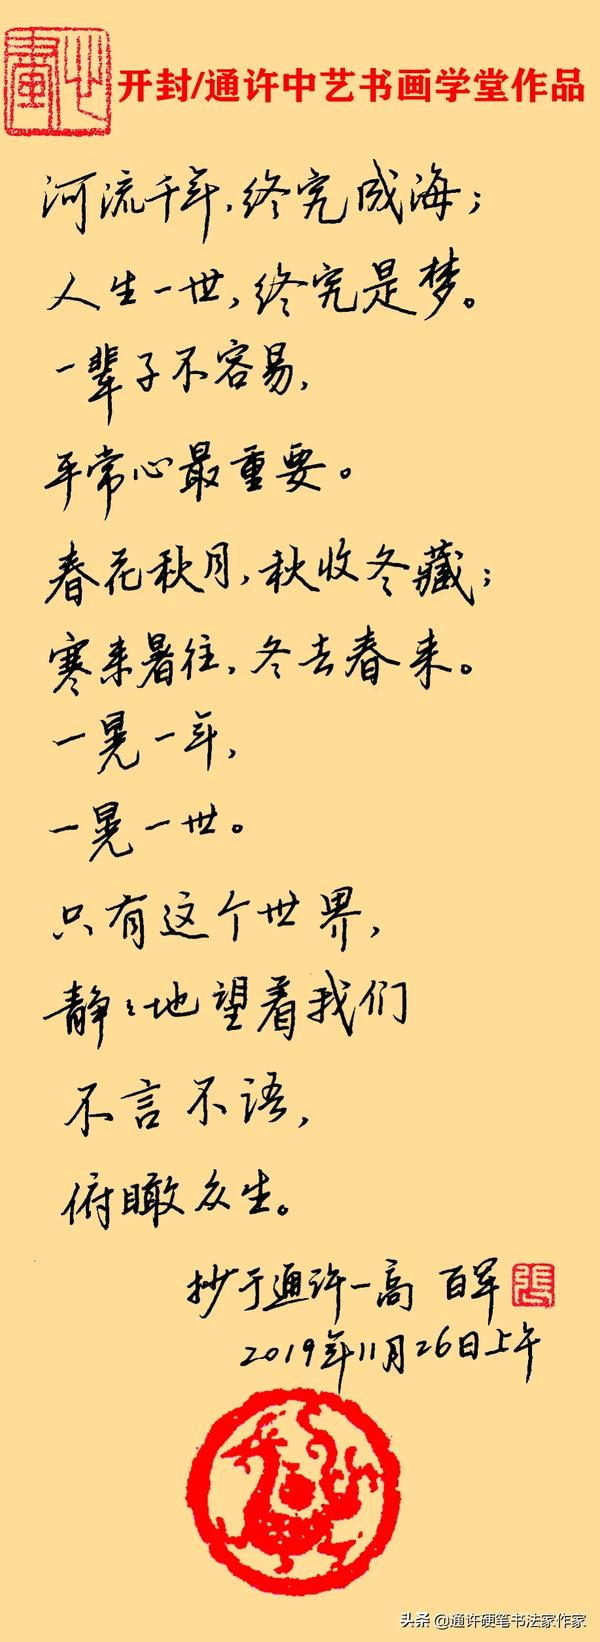 开封/通许中艺书画学堂作品
河流千年，终究成海；
人生一世，终究是梦。
一辈子不容易，
平常心最重要。
春花秋月，秋收冬藏；
寒来暑往，冬去春来。
一晃一年，
一晃一世。
只有这个世界，
静々地望着我们
不言不语，
俯瞰众生。
抄于通许一高 百军 張
2019年11月26日上午
头条 @通许硬笔书法家作家